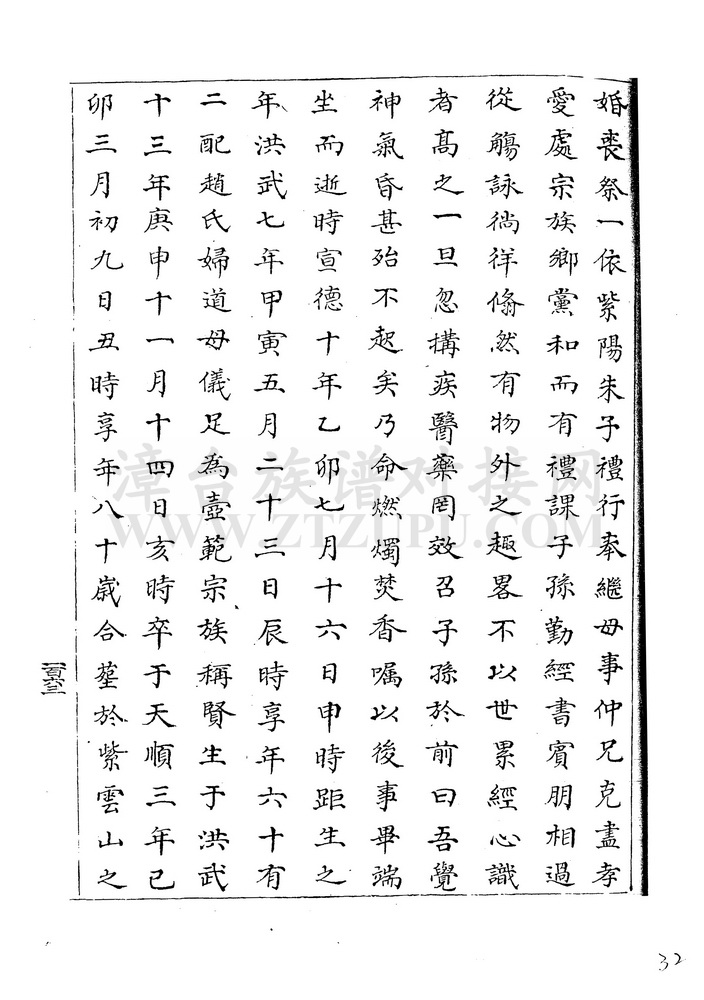 婚喪祭一依紫陽朱子禮行奉繼母事仲兄克盡孝
愛處宗族鄉黨和而有禮課子孫勤經書賓朋相過
從觴詠徜徉翛然有物外之趣畧不以世累經心識
者高之一旦忽搆疾醫藥罔效召子孫於前曰吾覺
神氣昏甚殆不起矣乃命燃燭焚香囑以後事畢端
坐而逝時宣德十年乙卯七月十六日申時距生之
年洪武七年甲寅五月二十三日辰時享年六十有
二配趙氏婦道母儀足為壼範宗族稱賢生于洪武
十三年庚申十一月十四日亥時卒于天順三年己
卯三月初九日丑時享年八十歲合塟於紫雲山之
漳台族谱对接网
WWW.ZTZUPU.COM
32